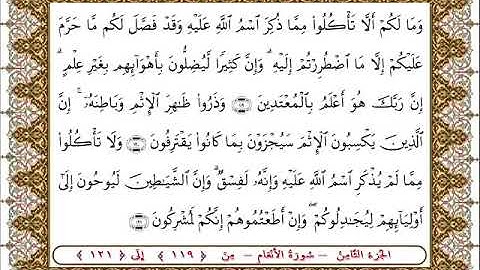 وَمَا لَكُمْ أَلَّا تَأْكُلُوا۟ مِمَّا ذُكِرَ ٱسْمُ ٱللَّهِ عَلَيْهِ وَقَدْ فَصَّلَ لَكُم مَّا حَرَّمَ
عَلَيْكُمْ إِلَّا مَا ٱضْطُرِرْتُمْ إِلَيْهِ ۗ وَإِنَّ كَثِيرًا لَّيُضِلُّونَ بِأَهْوَآئِهِم بِغَيْرِ عِلْمٍ ۗ
إِنَّ رَبَّكَ هُوَ أَعْلَمُ بِٱلْمُعْتَدِينَ ﴿١١٩﴾ وَذَرُوا۟ ظَـٰهِرَ ٱلْإِثْمِ وَبَاطِنَهُۥٓ ۚ إِنَّ
ٱلَّذِينَ يَكْسِبُونَ ٱلْإِثْمَ سَيُجْزَوْنَ بِمَا كَانُوا۟ يَقْتَرِفُونَ ﴿١٢٠﴾ وَلَا تَأْكُلُوا۟
مِمَّا لَمْ يُذْكَرِ ٱسْمُ ٱللَّهِ عَلَيْهِ وَإِنَّهُۥ لَفِسْقٌ ۗ وَإِنَّ ٱلشَّيَـٰطِينَ لَيُوحُونَ إِلَىٰٓ
أَوْلِيَآئِهِمْ لِيُجَـٰدِلُوكُمْ ۖ وَإِنْ أَطَعْتُمُوهُمْ إِنَّكُمْ لَمُشْرِكُونَ ﴿١٢١﴾
الجزء الثامن – سورة الأنعام – من ﴿ ١١٩ ﴾ إلى ﴿ ١٢١ ﴾